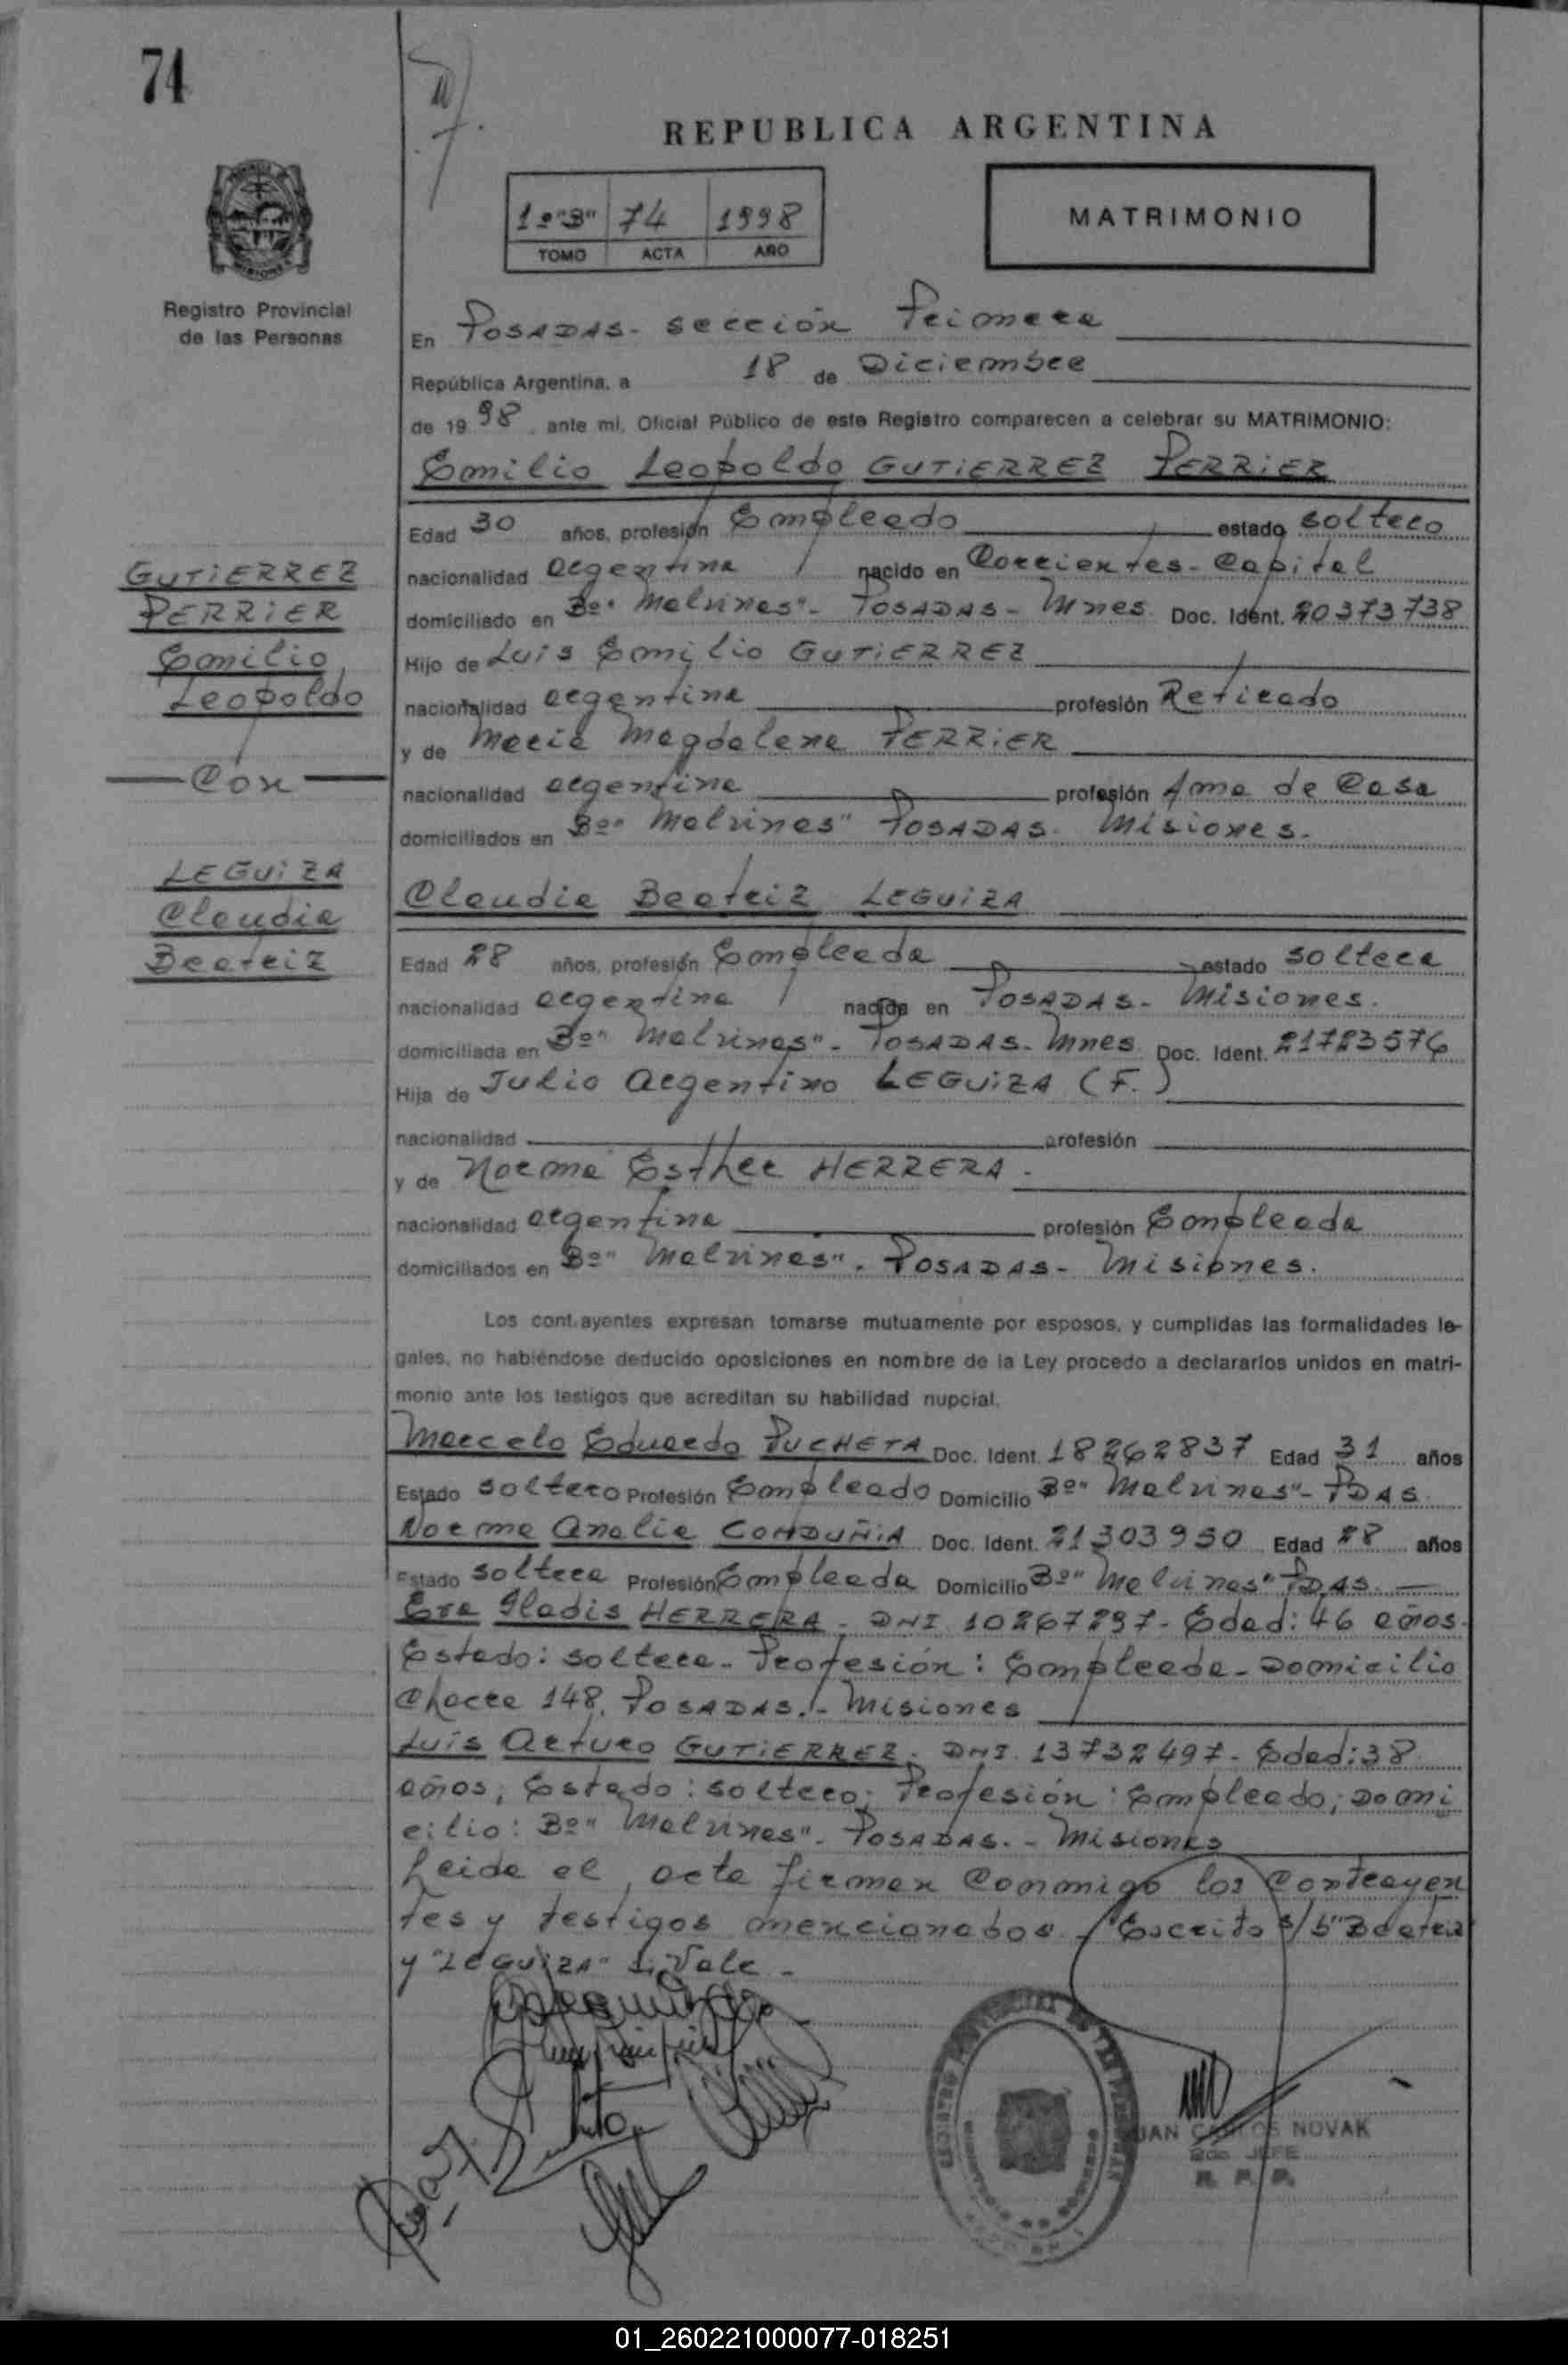 74
REPUBLICA ARGENTINA
1º "B" 74 1998
TOMO ACTA AÑO
MATRIMONIO
Registro Provincial
de las Personas
En POSADAS - Sección Primera
República Argentina, a 18 de Diciembre
de 1998, ante mí, Oficial Público de este Registro comparecen a celebrar su MATRIMONIO:
Emilio Leopoldo GUTIERREZ PERRIER
Edad 30 años, profesión Empleado estado soltero
nacionalidad argentina nacido en Corrientes - Capital
domiciliado en Bº "Malvinas" - POSADAS - Mnes Doc. Ident. 20373738
Hijo de Luis Emilio GUTIERREZ
nacionalidad argentina profesión Retirado
y de Maria Magdalena PERRIER
nacionalidad argentina profesión Ama de Casa
domiciliados en Bº "Malvinas" POSADAS - Misiones.
GUTIERREZ
PERRIER
Emilio
Leopoldo
Con
LEGUIZA
Claudia
Beatriz
Claudia Beatriz LEGUIZA
Edad 28 años, profesión Empleada estado soltera
nacionalidad argentina nacida en POSADAS - Misiones.
domiciliada en Bº "Malvinas" - POSADAS - Mnes Doc. Ident. 21723576
Hija de Julio Argentino LEGUIZA (F.)
nacionalidad profesión
y de Norma Esther HERRERA -
nacionalidad argentina profesión Empleada
domiciliados en Bº "Malvinas". POSADAS - Misiones.
Los contrayentes expresan tomarse mutuamente por esposos, y cumplidas las formalidades le-
gales, no habiéndose deducido oposiciones en nombre de la Ley procedo a declararlos unidos en matri-
monio ante los testigos que acreditan su habilidad nupcial.
Marcelo Eduardo PUCHETA Doc. Ident. 18262837 Edad 31 años
Estado soltero Profesión Empleado Domicilio Bº "Malvinas" - PDAS
Norma Analia CONDUÑIA Doc. Ident. 21303950 Edad 28 años
Estado soltera Profesión Empleada Domicilio Bº "Malvinas" PDAS.
Eva Gladis HERRERA - DNI 10267297 - Edad: 46 años.
Estado: soltera - Profesión: Empleada - Domicilio
Chacra 148. POSADAS. - Misiones
Luis Arturo GUTIERREZ - DNI. 13732497 - Edad: 38
años; Estado: soltero; Profesión: Empleado; Domi
cilio: Bº "Malvinas" - POSADAS. - Misiones
Leida el acta firman conmigo los contrayen
tes y testigos mencionados. Escrito s/b "Beatriz
y "LEGUIZA" Vale -
JUAN CARLOS NOVAK
2do. JEFE
R. P. P.
01_260221000077-018251